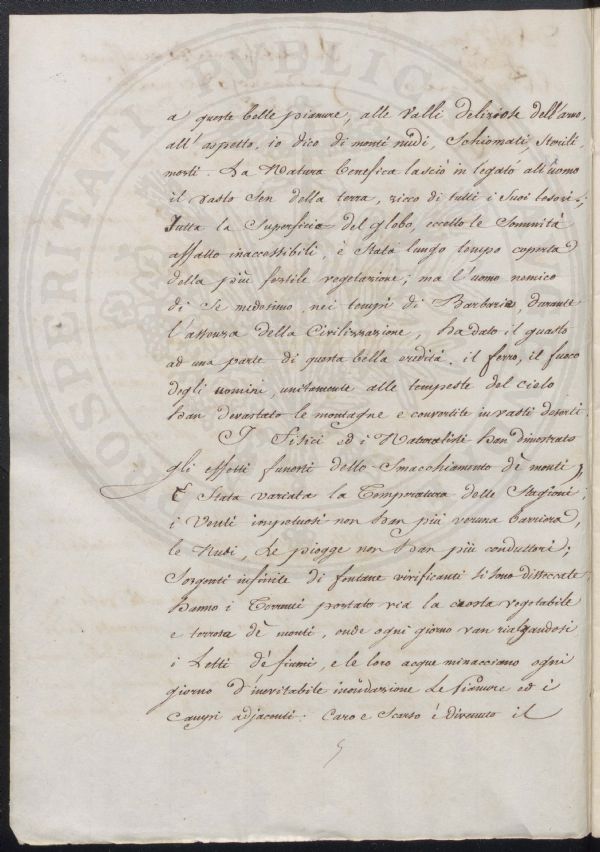 a queste belle pianure, alle valli deliziose dell'arno,
all'aspetto, io dico di monti nudi, Schiomati, sterili,
morti. La Natura benefica lasciò in legato all'uomo
il vasto Sen della terra, ricco di tutti i Suoi tesori;
Tutta la Superficie del globo, eccetto le Sommità
affatto inaccessibili, è Stata lungo tempo coperta
della più fertile vegetazione; ma l'uomo nemico
di Se medesimo, nei tempi di Barbarie, durante
l'assenza della Civilizzazione, ha dato il guasto
ad una parte di questa bella eredità. il ferro, il fuoco
degli uomini, unitamente alle tempeste del cielo
han devastato le montagne e convertite in vasti deserti.
I Fisici ed i Naturalisti han dimostrato
gli effetti funesti dello Smacchiamento dè monti,
È Stata variata la Temperatura delle Stagioni;
i Venti impetuosi non han più veruna barriera,
le Nubi, Le piogge non han più conduttori;
Sorgenti infinite di fontane vivificanti si sono disseccate
hanno i Torrenti portato via la crosta vegetabile
e terrosa dè monti, onde ogni giorno van rialzandosi
i Letti dè fiumi, e le loro acque minacciano ogni
giorno d'inevitabile inondazione Le Pianure ed i
Campi adjacenti: Caro e Scarso è divenuto il
5
PROSPERITATI PVBLICAE